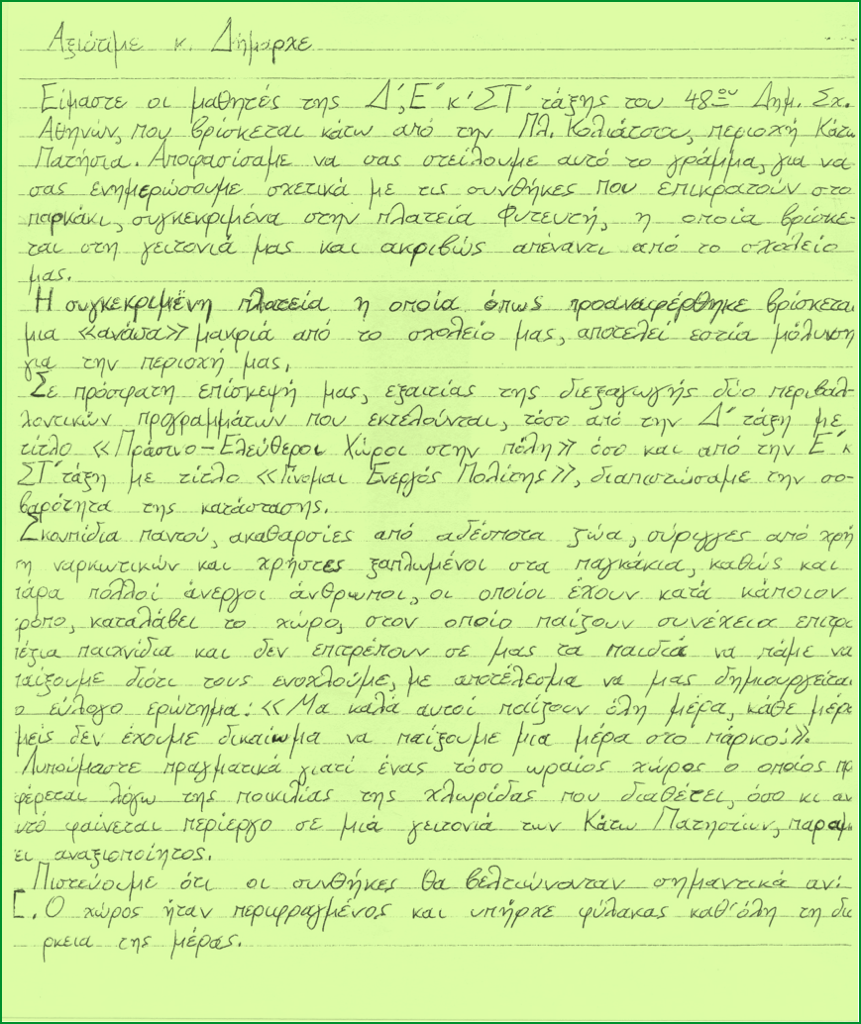 Αξιότιμε κ. Δήμαρχε
Είμαστε οι μαθητές της Δ΄, Ε΄ κ΄ ΣΤ΄ τάξης του 48ου Δημ. Σχ.
Αθηνών, που βρίσκεται κάτω από την Πλ. Κολιάτσου, περιοχή Κάτω
Πατήσια. Αποφασίσαμε να σας στείλουμε αυτό το γράμμα, για να
σας ενημερώσουμε σχετικά με τις συνθήκες που επικρατούν στο
παρκάκι, συγκεκριμένα στην πλατεία Φυτευτή, η οποία βρίσκε-
ται στη γειτονιά μας και ακριβώς απέναντι από το σχολείο
μας.
Η συγκεκριμένη πλατεία η οποία όπως προαναφέρθηκε βρίσκεται
μια «ανάσα» μακριά από το σχολείο μας, αποτελεί εστία μόλυνση
για την περιοχή μας.
Σε πρόσφατη επίσκεψή μας, εξαιτίας της διεξαγωγής δύο περιβαλ-
λοντικών προγραμμάτων που εκτελούνται, τόσο από την Δ΄ τάξη με
τίτλο «Πράσινο - Ελεύθεροι Χώροι στην πόλη» όσο και από την Ε΄ κ
ΣΤ΄ τάξη με τίτλο «Γίνομαι Ενεργός Πολίτης», διαπιστώσαμε την σο-
βαρότητα της κατάστασης.
Σκουπίδια παντού, ακαθαρσίες από αδέσποτα ζώα, σύριγγες από χρή
ση ναρκωτικών και χρήστες ξαπλωμένοι στα παγκάκια, καθώς και
πάρα πολλοί άνεργοι άνθρωποι, οι οποίοι έχουν κατά κάποιον
ρόπο, καταλάβει το χώρο, στον οποίο παίζουν συνέχεια επιτρα
πέζια παιχνίδια και δεν επιτρέπουν σε μας τα παιδιά να πάμε να
παίξουμε διότι τους ενοχλούμε, με αποτέλεσμα να μας δημιουργείται
ο εύλογο ερώτημα: «Μα καλά αυτοί παίζουν όλη μέρα, κάθε μέρα
μείς δεν έχουμε δικαίωμα να παίξουμε μια μέρα στο πάρκο;».
Λυπούμαστε πραγματικά γιατί ένας τόσο ωραίος χώρος ο οποίος πρ
φέρεται λόγω της ποικιλίας της χλωρίδας που διαθέτει, όσο κι αν
υτό φαίνεται περίεργο σε μιά γειτονιά των Κάτω Πατησίων, παραμ
ει αναξιοποίητος.
Πιστεύουμε ότι οι συνθήκες θα βελτιώνονταν σημαντικά αν:
[. Ο χώρος ήταν περιφραγμένος και υπήρχε φύλακας καθ'όλη τη δι
ρκεια της μέρας.